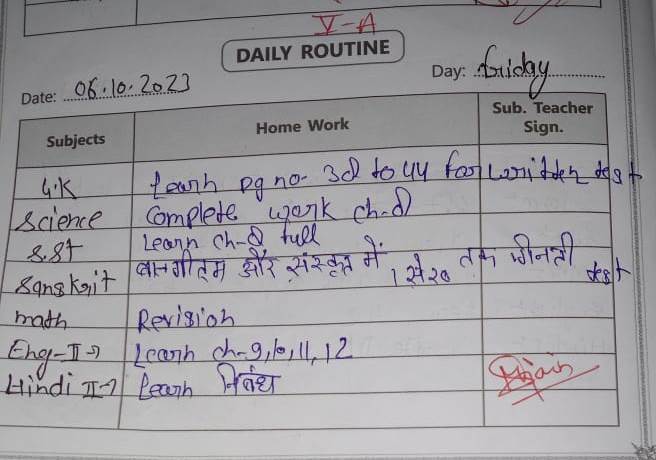 V-A
DAILY ROUTINE
Date: 06.10.2023 Day: friday
Subjects Home Work Sub. Teacher Sign.
G.K Learn pg no. 38 to 44 for written test
Science Complete work ch-8
S.St Learn ch-8 full
Sanskrit और संस्कृत में 1 से 20 तक गीनती test
math Revision
Eng-II→ Learn ch-9,10,11,12
Hindi II→ Learn निबंध